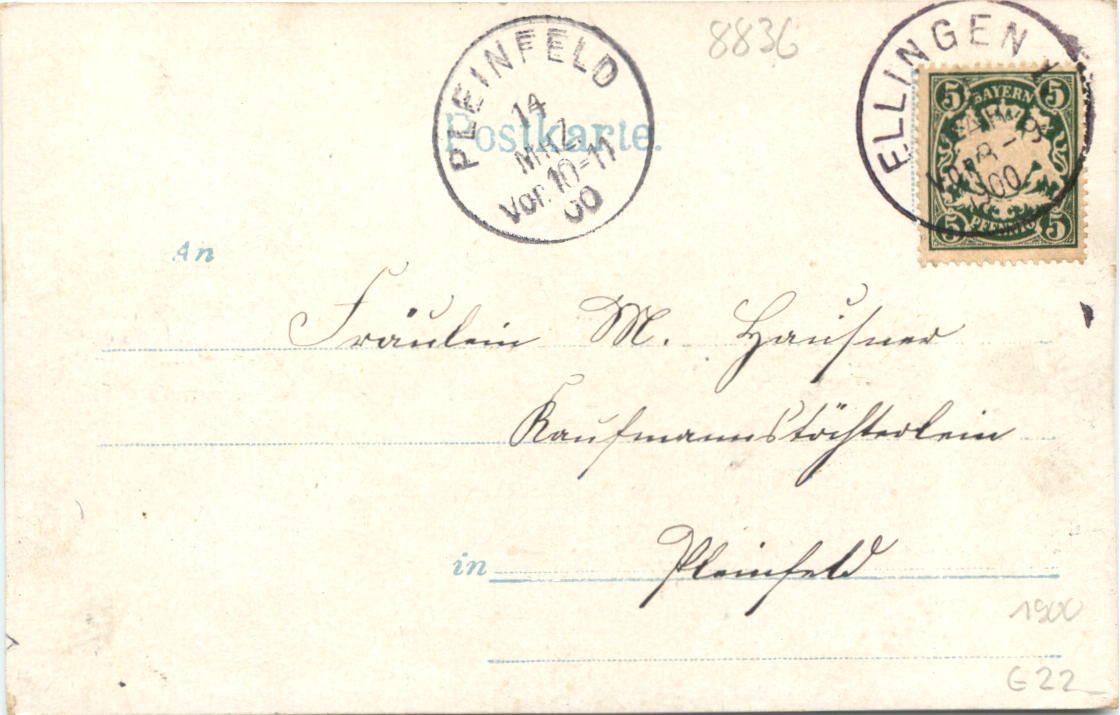 8836
PLEINFELD
14
MRZ
Vor. 10-11
00
ELLINGEN
5 BAYERN 5
5 PFENNIG 5
00
Postkarte.
An
Fräulein M. Hausner
Kaufmannstöchterlein
in Pleinfeld
1900
G22